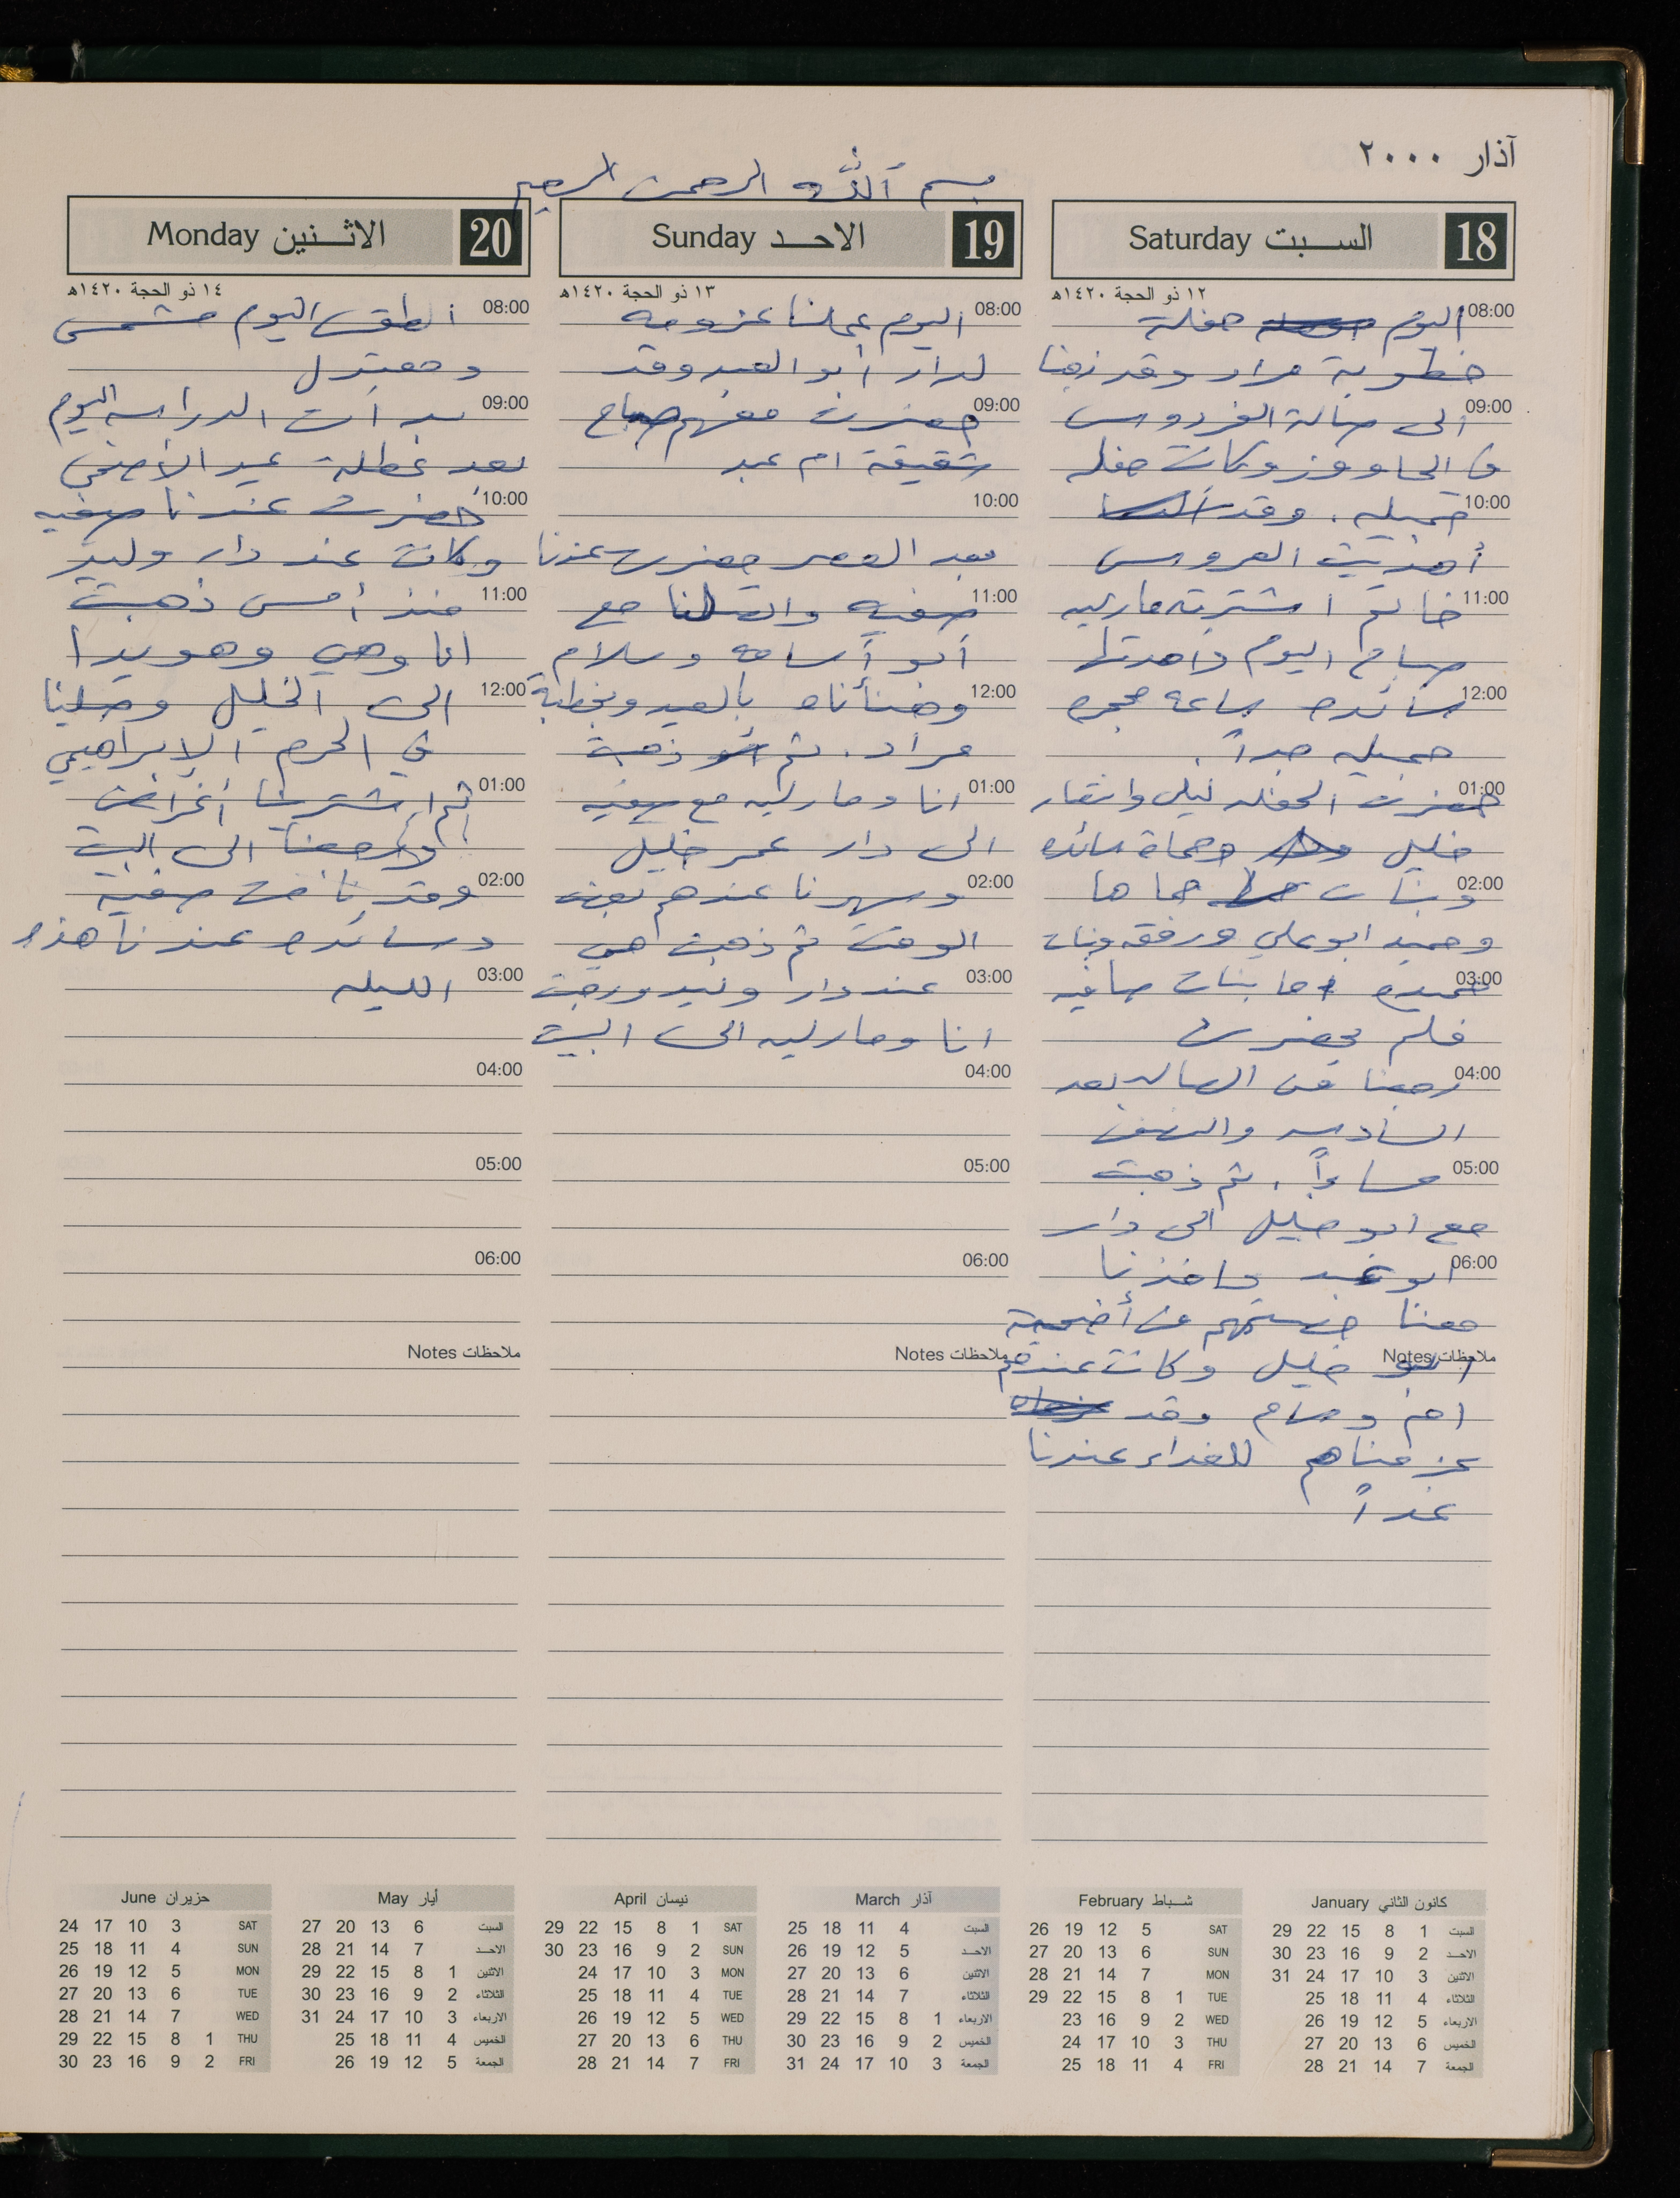 آذار ٢٠٠٠
بسم الله الرحمن الرحيم
18 السبت Saturday
١٢ ذو الحجة ١٤٢٠هـ
08:00 اليوم حفلة
خطوبة مراد وقد ذهبنا
09:00 الى صالة الفردوس
في الحاووز وكانت حفله
10:00 جميله . وقد
أهديت العروس
11:00 خاتم اشترته مارليه
صباح اليوم واهدتها
12:00 سائده ساعه محجره
جميله جداً .
01:00 حضرت الحفله ليلى وانتصار
خليل وحماة سائده
02:00 وبنات حماها
وحميد ابو علي ورفقه وبنات
03:00 حميده اما بنات صافيه
فلم يحضرن
04:00 رجعنا من الصاله بعد
السادسه والنصف
05:00 مساءاً . ثم ذهبت
مع ابو خليل الى دار
06:00 ابو عبد واخذنا
معنا حصتهم من أضحية
ملاحظات Notes ابو خليل وكانت عندهم
ام وسام وقد
عزمناهم للغداء عندنا
غداً
19 الاحد Sunday
١٣ ذو الحجة ١٤٢٠هـ
08:00 اليوم عملنا عزومه
لدار أبو العبد وقد
09:00 حضرت معهم صباح
شقيقة ام عبد
10:00
بعد العصر حضرت عندنا
11:00 صفيه واتصلنا مع
أبو أسامه وسلام
12:00 وهنأناه بالعيد وبخطبة
مراد . ثم ذهبت
01:00 انا ومارليه مع صفيه
الى دار عمر خليل
02:00 وسهرنا عندهم بعض
الوقت ثم ذهبت هي
03:00 عند دار وليد ورجعت
انا ومارليه الى البيت
04:00
05:00
06:00
ملاحظات Notes
20 الاثنين Monday
١٤ ذو الحجة ١٤٢٠هـ
08:00 الطقس اليوم مشمس
ومعتدل
09:00 بدأت الدراسه اليوم
بعد عطلة عيد الأضحى
10:00 حضرت عندنا صفيه
وكانت عند دار وليد
11:00 منذ أمس ذهبت
انا وهي وهويدا
12:00 الى الخليل وصلينا
في الحرم الإبراهيمي
01:00 ثم اشترينا أغراض
ورجعنا الى البيت
02:00 وقد نامت صفيه
وسائده عندنا هذه
03:00 الليله
04:00
05:00
06:00
ملاحظات Notes
كانون الثاني January
السبت 1 8 15 22 29
الاحد 2 9 16 23 30
الاثنين 3 10 17 24 31
الثلاثاء 4 11 18 25
الاربعاء 5 12 19 26
الخميس 6 13 20 27
الجمعة 7 14 21 28
شباط February
SAT 5 12 19 26
SUN 6 13 20 27
MON 7 14 21 28
TUE 1 8 15 22 29
WED 2 9 16 23
THU 3 10 17 24
FRI 4 11 18 25
آذار March
السبت 4 11 18 25
الاحد 5 12 19 26
الاثنين 6 13 20 27
الثلاثاء 7 14 21 28
الاربعاء 1 8 15 22 29
الخميس 2 9 16 23 30
الجمعة 3 10 17 24 31
نيسان April
SAT 1 8 15 22 29
SUN 2 9 16 23 30
MON 3 10 17 24
TUE 4 11 18 25
WED 5 12 19 26
THU 6 13 20 27
FRI 7 14 21 28
أيار May
السبت 6 13 20 27
الاحد 7 14 21 28
الاثنين 1 8 15 22 29
الثلاثاء 2 9 16 23 30
الاربعاء 3 10 17 24 31
الخميس 4 11 18 25
الجمعة 5 12 19 26
حزيران June
SAT 3 10 17 24
SUN 4 11 18 25
MON 5 12 19 26
TUE 6 13 20 27
WED 7 14 21 28
THU 1 8 15 22 29
FRI 2 9 16 23 30